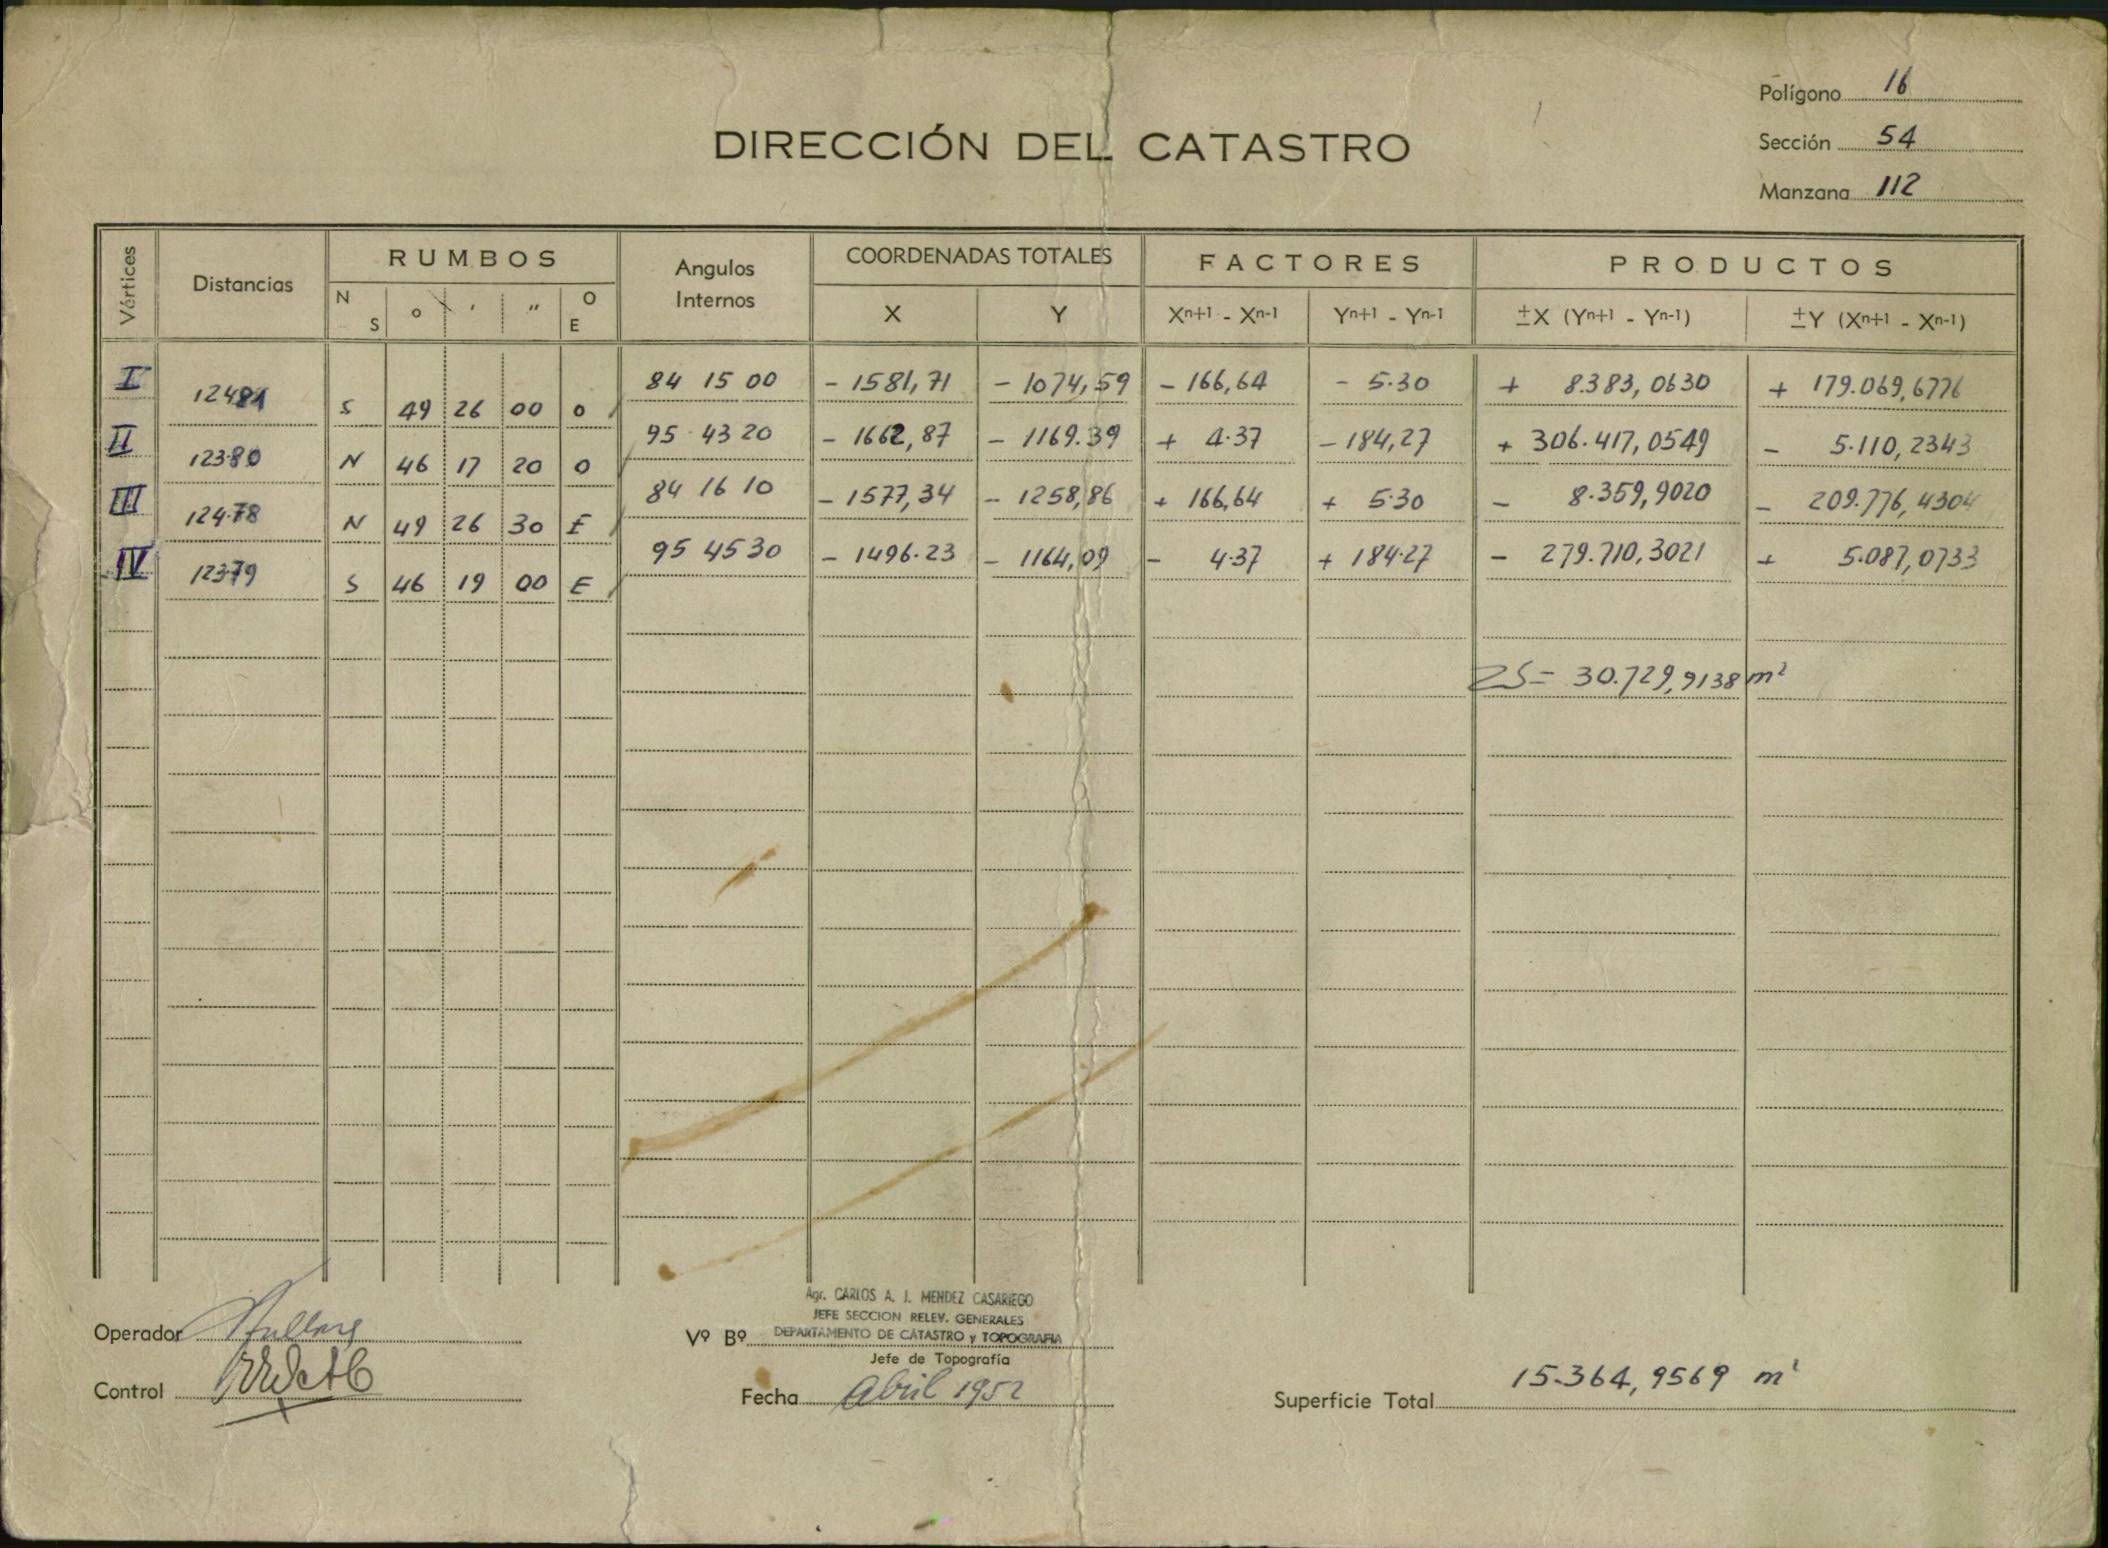 Polígono 16
DIRECCIÓN DEL CATASTRO
Sección 54
Manzana 112
Vértices Distancias RUMBOS Angulos Internos COORDENADAS TOTALES FACTORES PRODUCTOS
N S o ' " O E X Y Xn+1 - Xn-1 Yn+1 - Yn-1 ±X (Yn+1 - Yn-1) ±Y (Xn+1 - Xn-1)
I 84 15 00 - 1581,71 - 1074,59 - 166,64 - 5.30 + 8.383,0630 + 179.069,6776
124.81 S 49 26 00 O
II 95 43 20 - 1662,87 - 1169.39 + 4.37 - 184,27 + 306.417,0549 - 5.110,2343
123.80 N 46 17 20 O
III 84 16 10 - 1577,34 - 1258,86 + 166,64 + 5.30 - 8.359,9020 - 209.776,4304
124.78 N 49 26 30 E
IV 95 45 30 - 1496.23 - 1164,09 - 4.37 + 184.27 - 279.710,3021 + 5.087,0733
123.79 S 46 19 00 E
2S = 30.729,9138 m²
Agr. CARLOS A. J. MENDEZ CASARIEGO
JEFE SECCION RELEV. GENERALES
Operador
Vº Bº DEPARTAMENTO DE CATASTRO y TOPOGRAFIA
Jefe de Topografía
Control
Fecha Abril 1952
Superficie Total 15.364,9569 m²